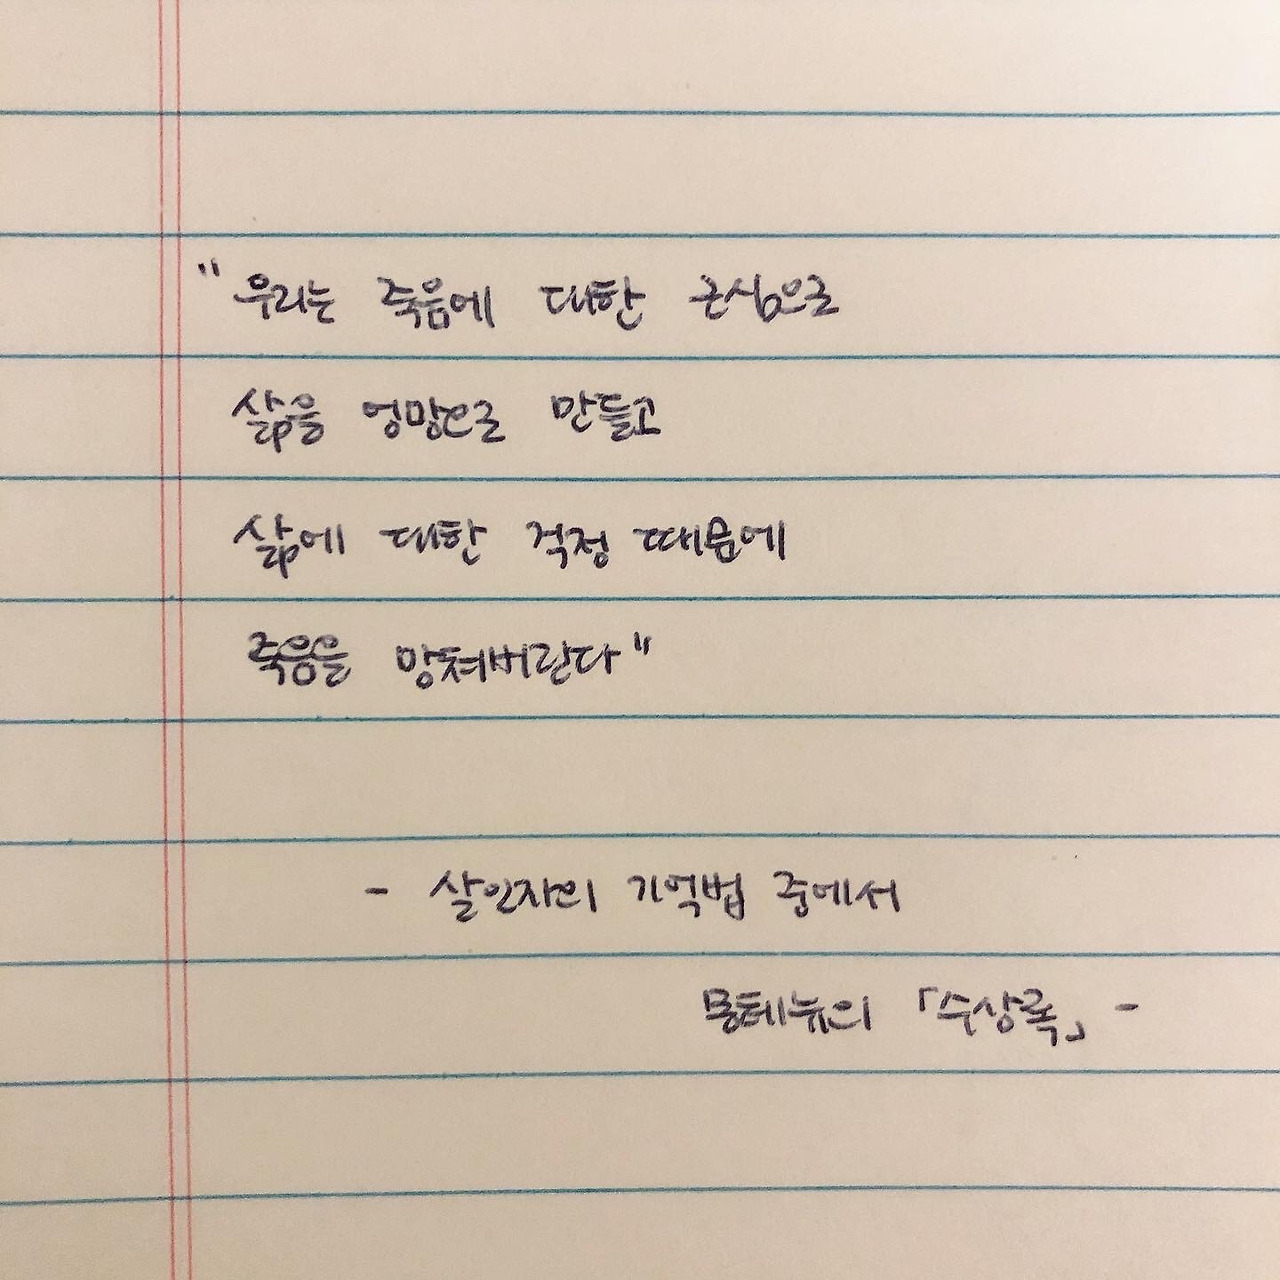 "우리는 죽음에 대한 근심으로
삶을 엉망으로 만들고
삶에 대한 걱정 때문에
죽음을 망쳐버린다"
- 살인자의 기억법 중에서
몽테뉴의 「수상록」 -